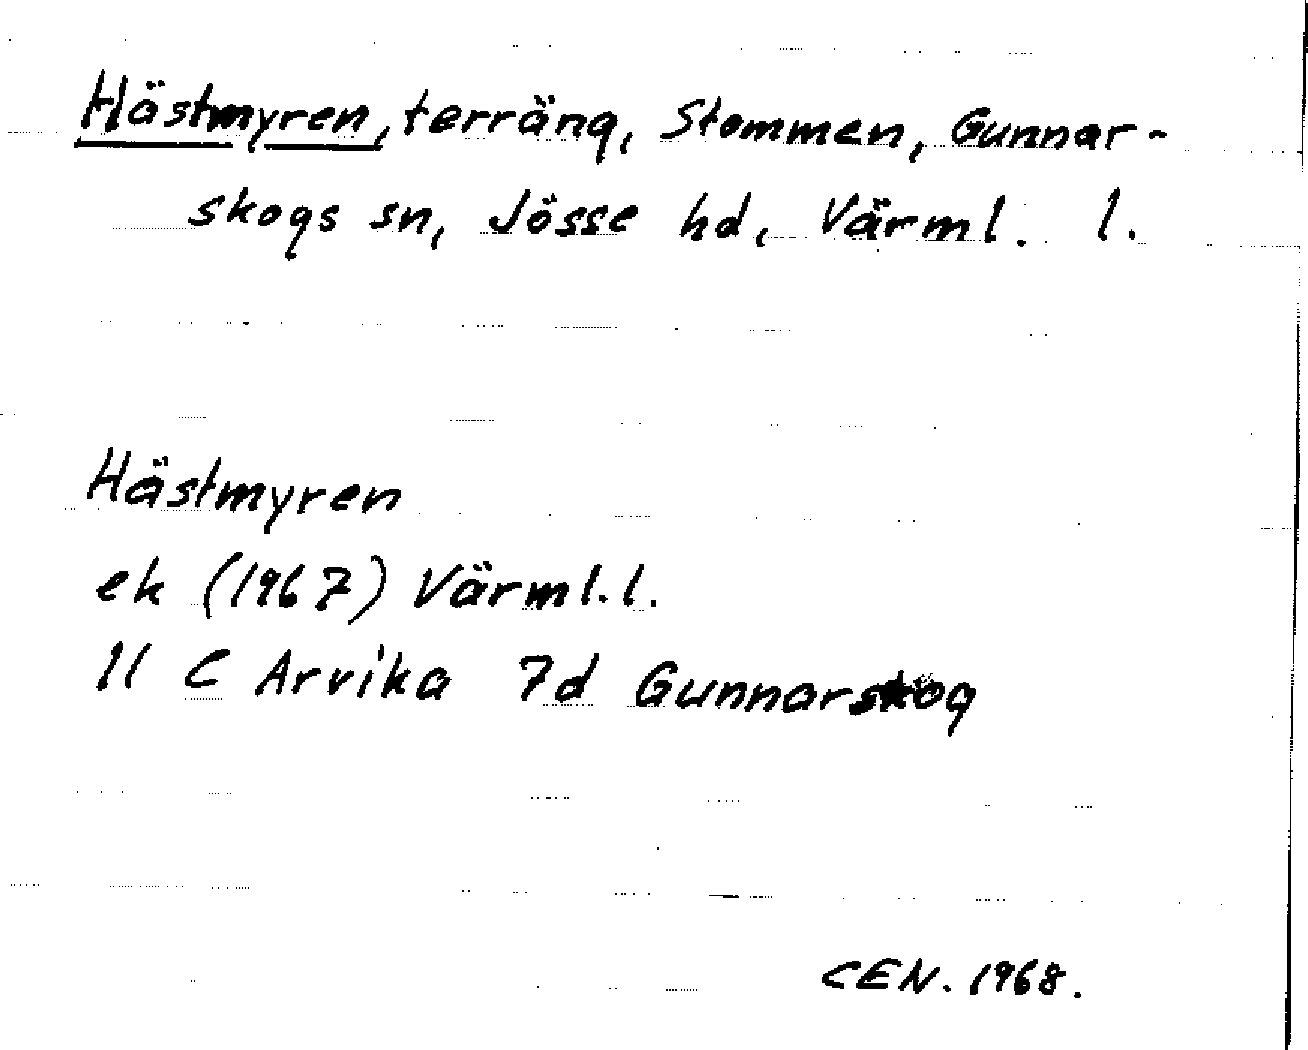 Hästmyren, terräng, Stommen, Gunnar-
skogs sn, Jösse hd, Värml. l.
Hästmyren
ek (1967) Värml. l.
11 C Arvika 7d Gunnarskog
CEN. 1968.